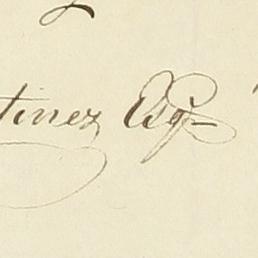 tinez Esqr